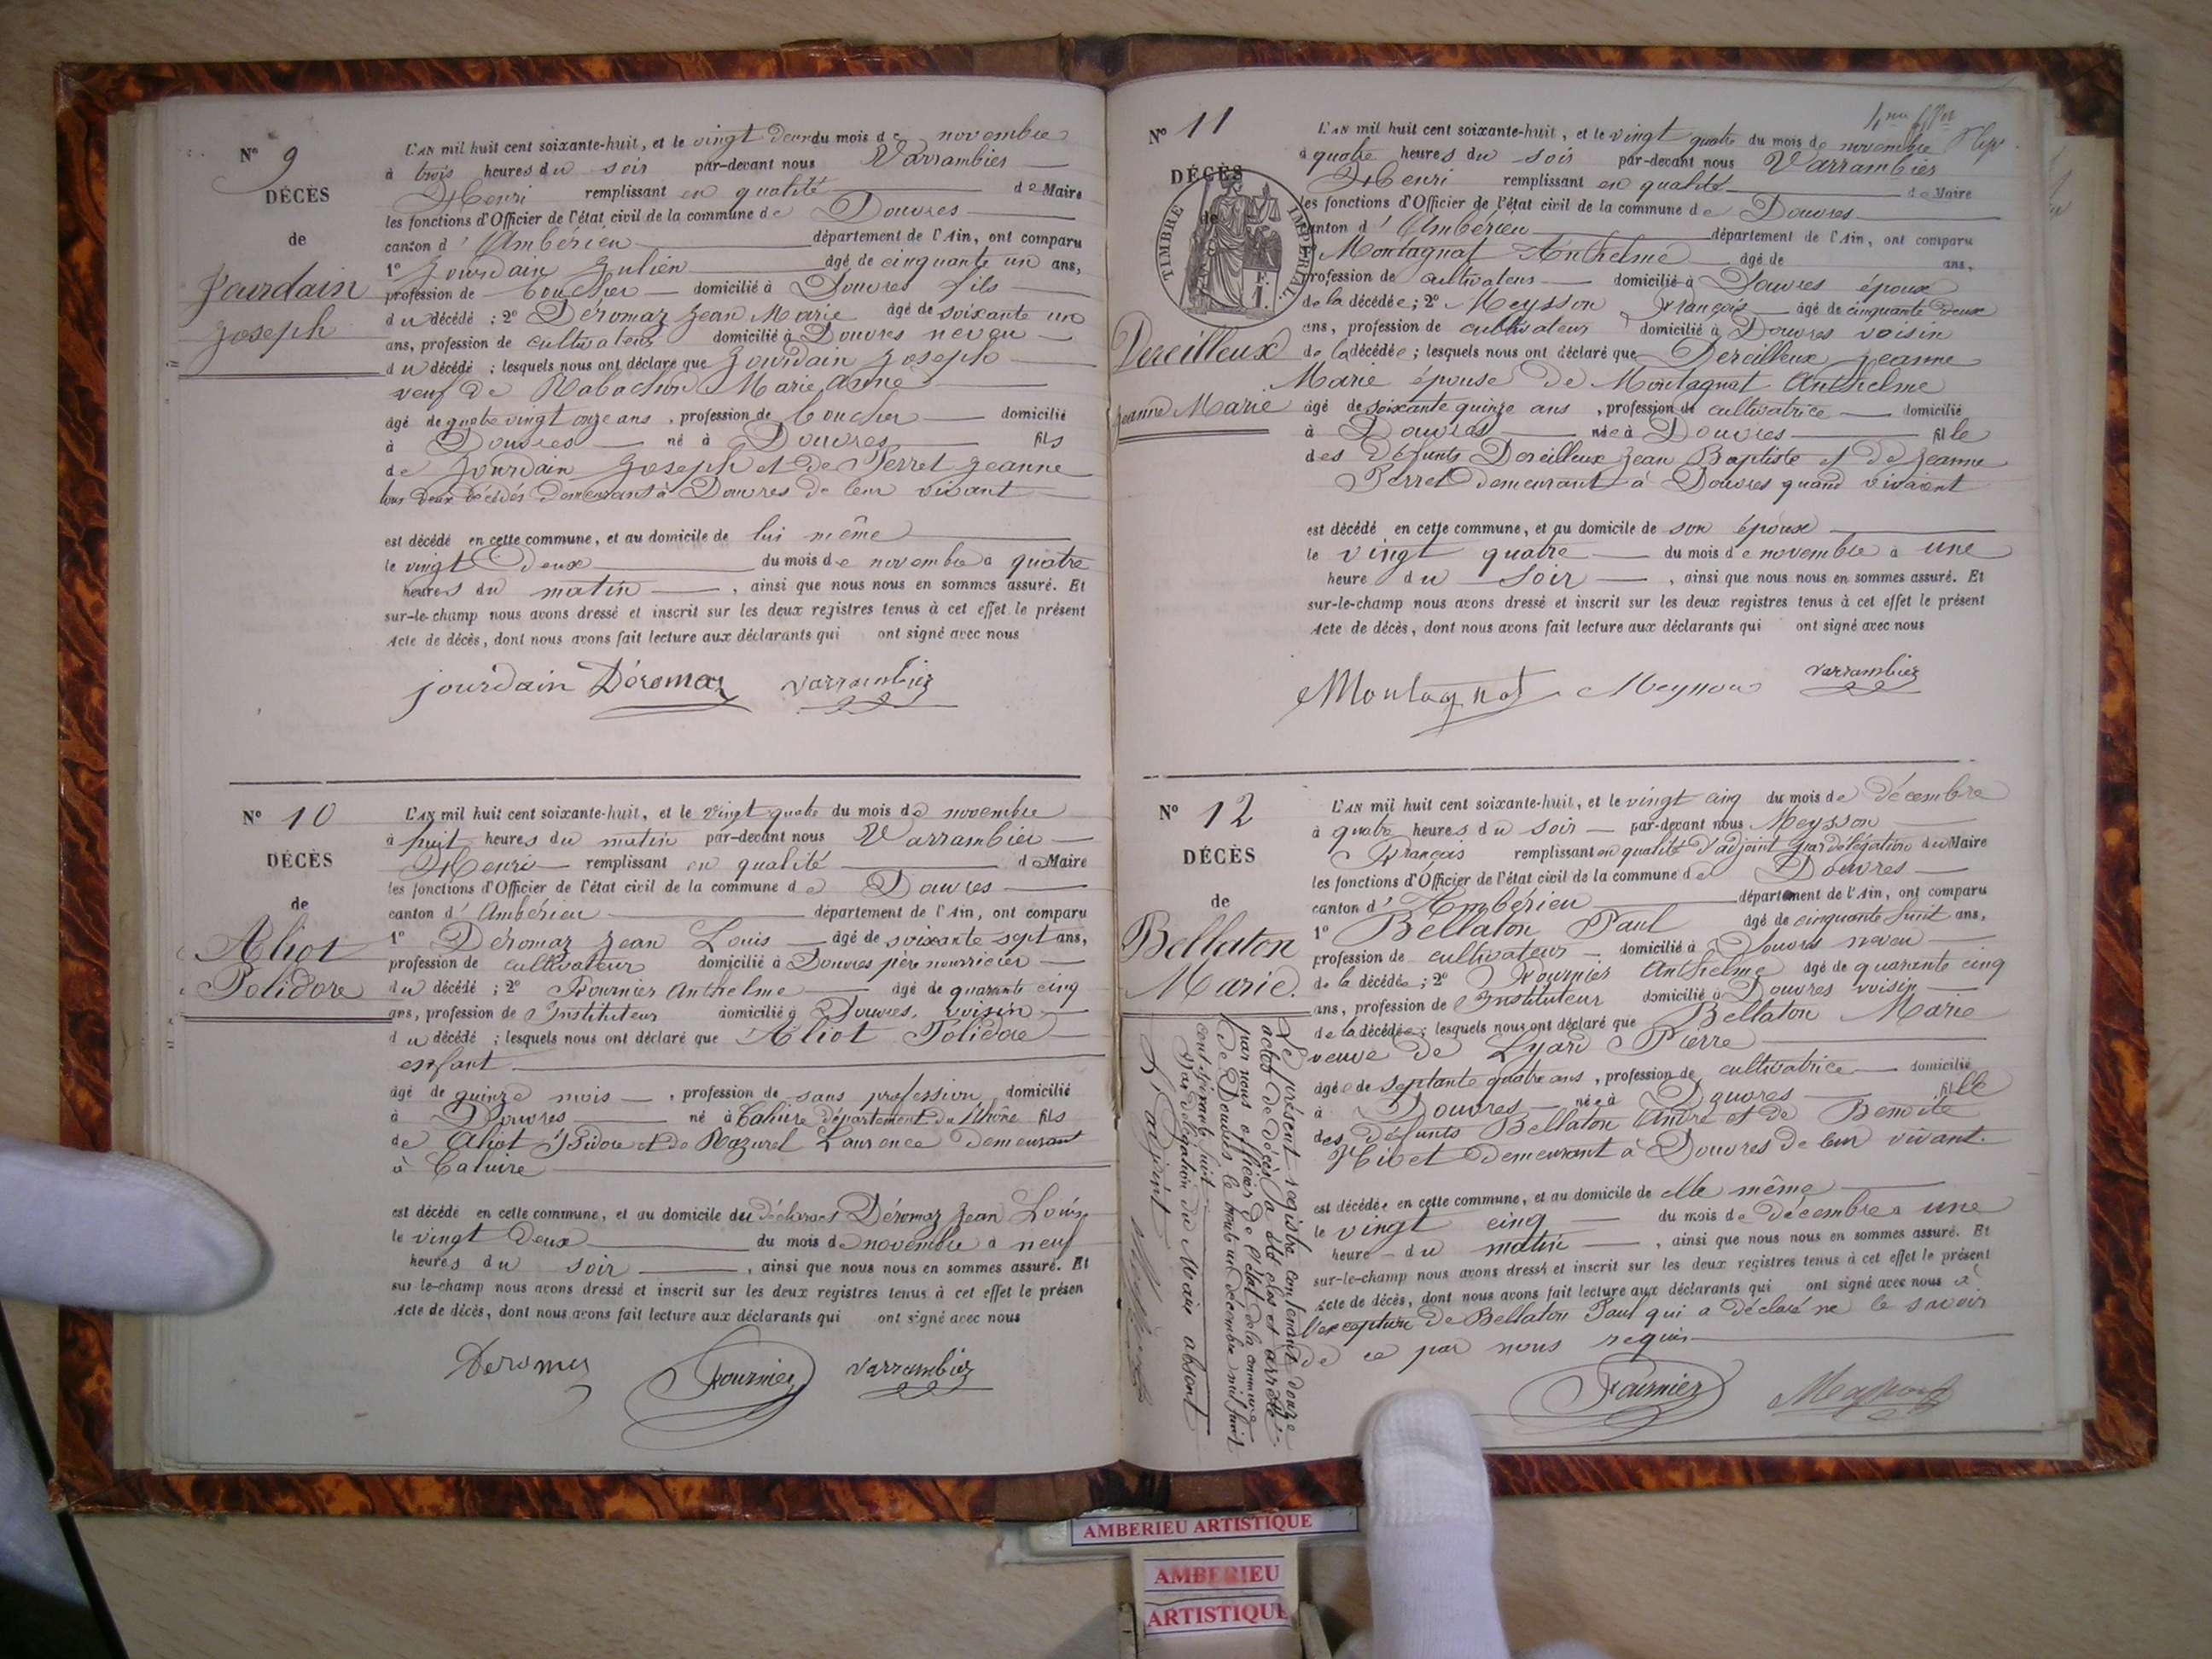 N° 9
DÉCÈS
de
Jourdain
Joseph
L'AN mil huit cent soixante-huit, et le vingt deux du mois de novembre
à trois heures du soir par-devant nous Varrambier
Henri remplissant en qualité de Maire
les fonctions d'Officier de l'état civil de la commune de Douvres
canton d'Ambérieu département de l'Ain, ont comparu
1° Jourdain Julien âgé de cinquante un ans,
profession de boucher domicilié à Douvres fils
du décédé ; 2° Déromaz Jean Marie âgé de soixante un
ans, profession de cultivateur domicilié à Douvres neveu
du décédé ; lesquels nous ont déclaré que Jourdain Joseph
veuf de Rabachon Marie Anne
âgé de quatre vingt onze ans, profession de boucher domicilié
à Douvres né à Douvres fils
de Jourdain Joseph et de Perret Jeanne
tous deux décédés demeurant à Douvres de leur vivant
est décédé en cette commune, et au domicile de lui même
le vingt deux du mois de novembre à quatre
heures du matin, ainsi que nous nous en sommes assuré. Et
sur-le-champ nous avons dressé et inscrit sur les deux registres tenus à cet effet le présent
Acte de décès, dont nous avons fait lecture aux déclarants qui ont signé avec nous
jourdain Déromaz varrambier
N° 10
DÉCÈS
de
Aliot
Polidore
L'AN mil huit cent soixante-huit, et le vingt quatre du mois de novembre
à huit heures du matin par-devant nous Varrambier
Henri remplissant en qualité de Maire
les fonctions d'Officier de l'état civil de la commune de Douvres
canton d'Ambérieu département de l'Ain, ont comparu
1° Déromaz Jean Louis âgé de soixante sept ans,
profession de cultivateur domicilié à Douvres père nourricier
du décédé ; 2° Fournier Anthelme âgé de quarante cinq
ans, profession de Instituteur domicilié à Douvres, voisin
du décédé ; lesquels nous ont déclaré que Aliot Polidore
enfant
âgé de quinze mois, profession de sans profession domicilié
à Douvres né à Caluire département du Rhône fils
de Aliot Isidore et de Razurel Laurence demeurant
à Caluire
est décédé en cette commune, et au domicile du déclarant Déromaz Jean Louis
le vingt deux du mois de novembre à neuf
heures du soir, ainsi que nous nous en sommes assuré. Et
sur-le-champ nous avons dressé et inscrit sur les deux registres tenus à cet effet le présen
Acte de décès, dont nous avons fait lecture aux déclarants qui ont signé avec nous
Deromaz Fournier varrambier
N° 11
DÉCÈS
de
TIMBRE IMPÉRIAL
Dereilleux
Jeanne Marie
L'AN mil huit cent soixante-huit, et le vingt quatre du mois de novembre
à quatre heures du soir par-devant nous Varrambier
Henri remplissant en qualité de Maire
les fonctions d'Officier de l'état civil de la commune de Douvres
canton d'Ambérieu département de l'Ain, ont comparu
Montagnat Anthelme âgé de ans,
profession de cultivateur domicilié à Douvres époux
de la décédée ; 2° Meysson François âgé de cinquante deux
ans, profession de cultivateur domicilié à Douvres voisin
de la décédée ; lesquels nous ont déclaré que Dereilleux Jeanne
Marie épouse de Montagnat Anthelme
âgé de soixante quinze ans, profession de cultivatrice domicilié
à Douvres née à Douvres fille
des défunts Dereilleux Jean Baptiste et de Jeanne
Perret demeurant à Douvres quand vivaient
est décédé en cette commune, et au domicile de son épouse
le vingt quatre du mois de novembre à une
heure du soir, ainsi que nous nous en sommes assuré. Et
sur-le-champ nous avons dressé et inscrit sur les deux registres tenus à cet effet le présent
Acte de décès, dont nous avons fait lecture aux déclarants qui ont signé avec nous
Montagnat Meysson varrambier
N° 12
DÉCÈS
de
Bellaton
Marie.
L'AN mil huit cent soixante-huit, et le vingt cinq du mois de décembre
à quatre heures du soir par-devant nous Meysson
François remplissant en qualité d'adjoint par délégation du Maire
les fonctions d'Officier de l'état civil de la commune de Douvres
canton d'Ambérieu département de l'Ain, ont comparu
1° Bellaton Paul âgé de cinquante huit ans,
profession de cultivateur domicilié à Douvres neveu
de la décédée ; 2° Fournier Anthelme âgé de quarante cinq
ans, profession de Instituteur domicilié à Douvres voisin
de la décédée ; lesquels nous ont déclaré que Bellaton Marie
veuve de Lyard Pierre
âgée de septante quatre ans, profession de cultivatrice domicilié
à Douvres née à Douvres fille
des défunts Bellaton André et de Benoite
demeurant à Douvres de leur vivant.
est décédée en cette commune, et au domicile de elle même
le vingt cinq du mois de décembre à une
heure du matin, ainsi que nous nous en sommes assuré. Et
sur-le-champ nous avons dressé et inscrit sur les deux registres tenus à cet effet le présent
Acte de décès, dont nous avons fait lecture aux déclarants qui ont signé avec nous à
l'exception de Bellaton Paul qui a déclaré ne le savoir
de ce par nous requis
Fournier Meysson
Le présent registre contenant douze
actes de décès a été clos et arrêté
par nous officier de l'état civil de la commune
de Douvres le trente un décembre mil huit
cent soixante huit
Par délégation du Maire absent
L'adjoint
AMBERIEU ARTISTIQUE
AMBERIEU
ARTISTIQUE